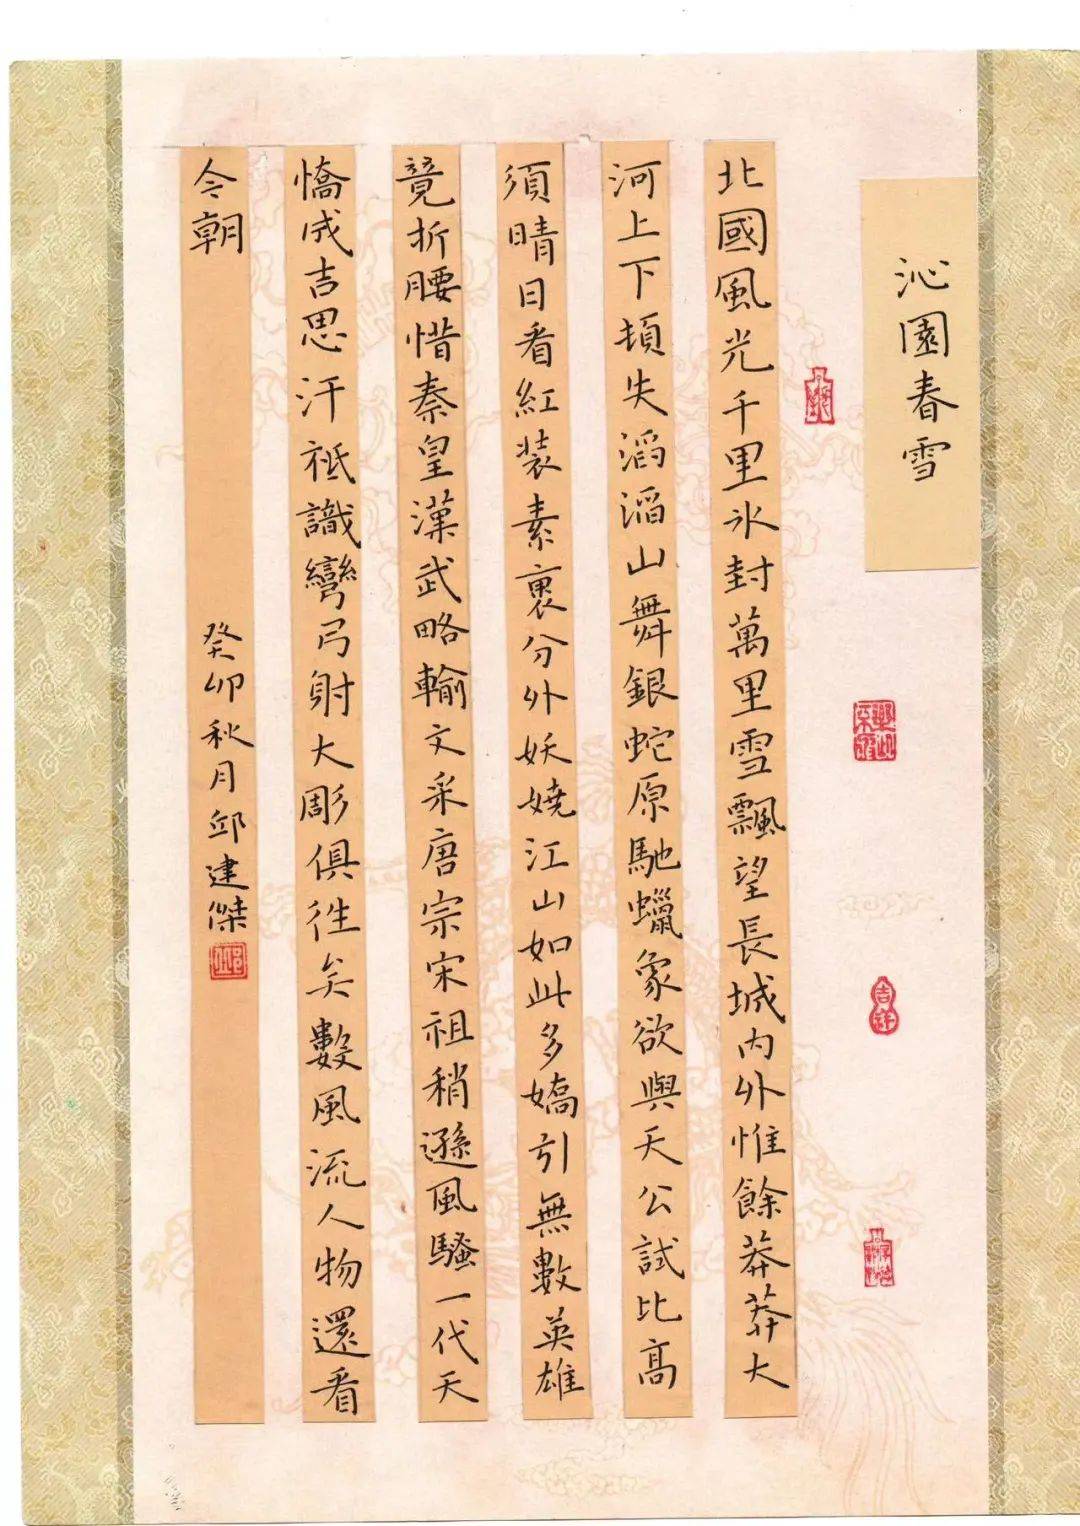 沁園春雪
北國風光千里氷封萬里雪飄望長城内外惟餘莽莽大
河上下頓失滔滔山舞銀蛇原馳蠟象欲與天公試比高
須晴日看紅装素裹分外妖嬈江山如此多嬌引無數英雄
竟折腰惜秦皇漢武略輸文采唐宗宋祖稍遜風騷一代天
憍成吉思汗祗識彎弓射大彫俱往矣數風流人物還看
今朝
癸卯秋月邱建傑
吉祥